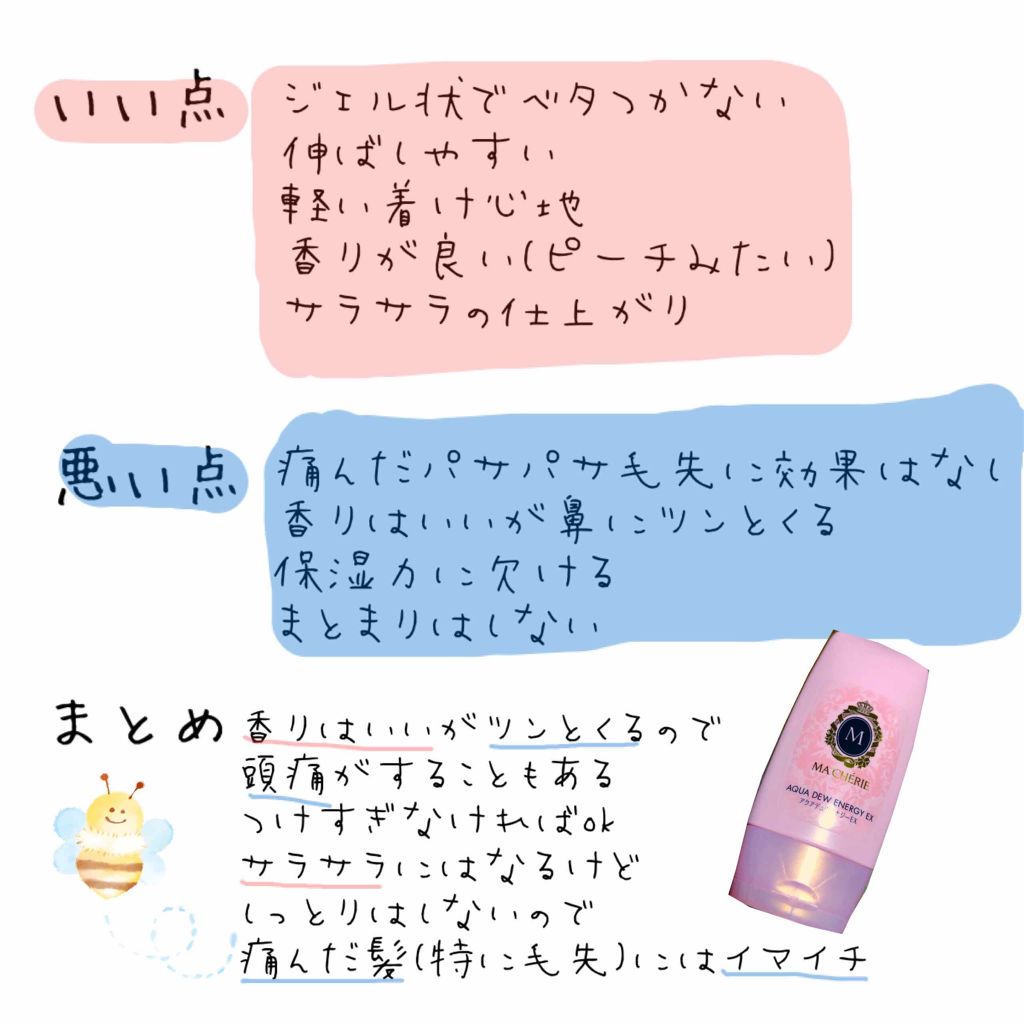 いい点
ジェル状でベタつかない
伸ばしやすい
軽い着け心地
香りが良い(ピーチみたい)
サラサラの仕上がり
悪い点
痛んだパサパサ毛先に効果はなし
香りはいいが鼻にツンとくる
保湿力に欠ける
まとまりはしない
まとめ
香りはいいがツンとくるので
頭痛がすることもある
つけすぎなければok
サラサラにはなるけど
しっとりはしないので
痛んだ髪(特に毛先)にはイマイチ
M
MA CHÉRIE
AQUA DEW ENERGY EX